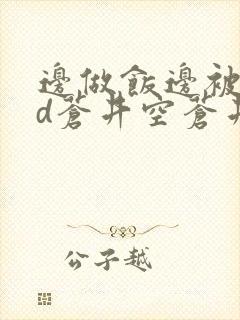 邊做飯邊被
d蒼井空蒼井
公子越